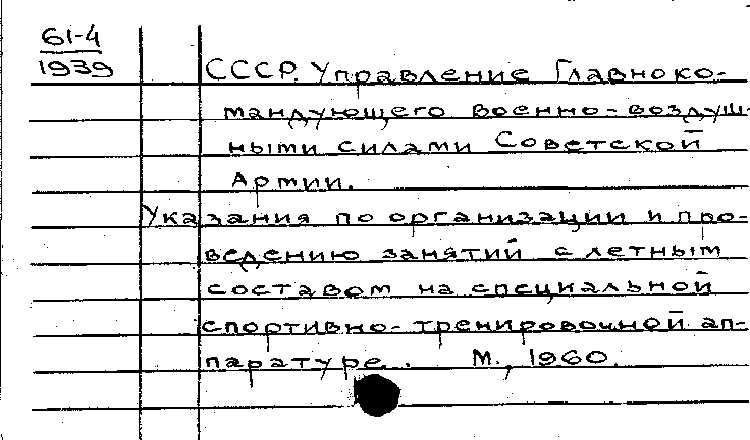 61-4
1939
СССР. Управление Главноко-
мандующего военно-воздуш-
ными силами Советской
Армии.
Указания по организации и про-
ведению занятий с летным
составом на специальной
спортивно-тренировочной ап-
паратуре. М., 1960.